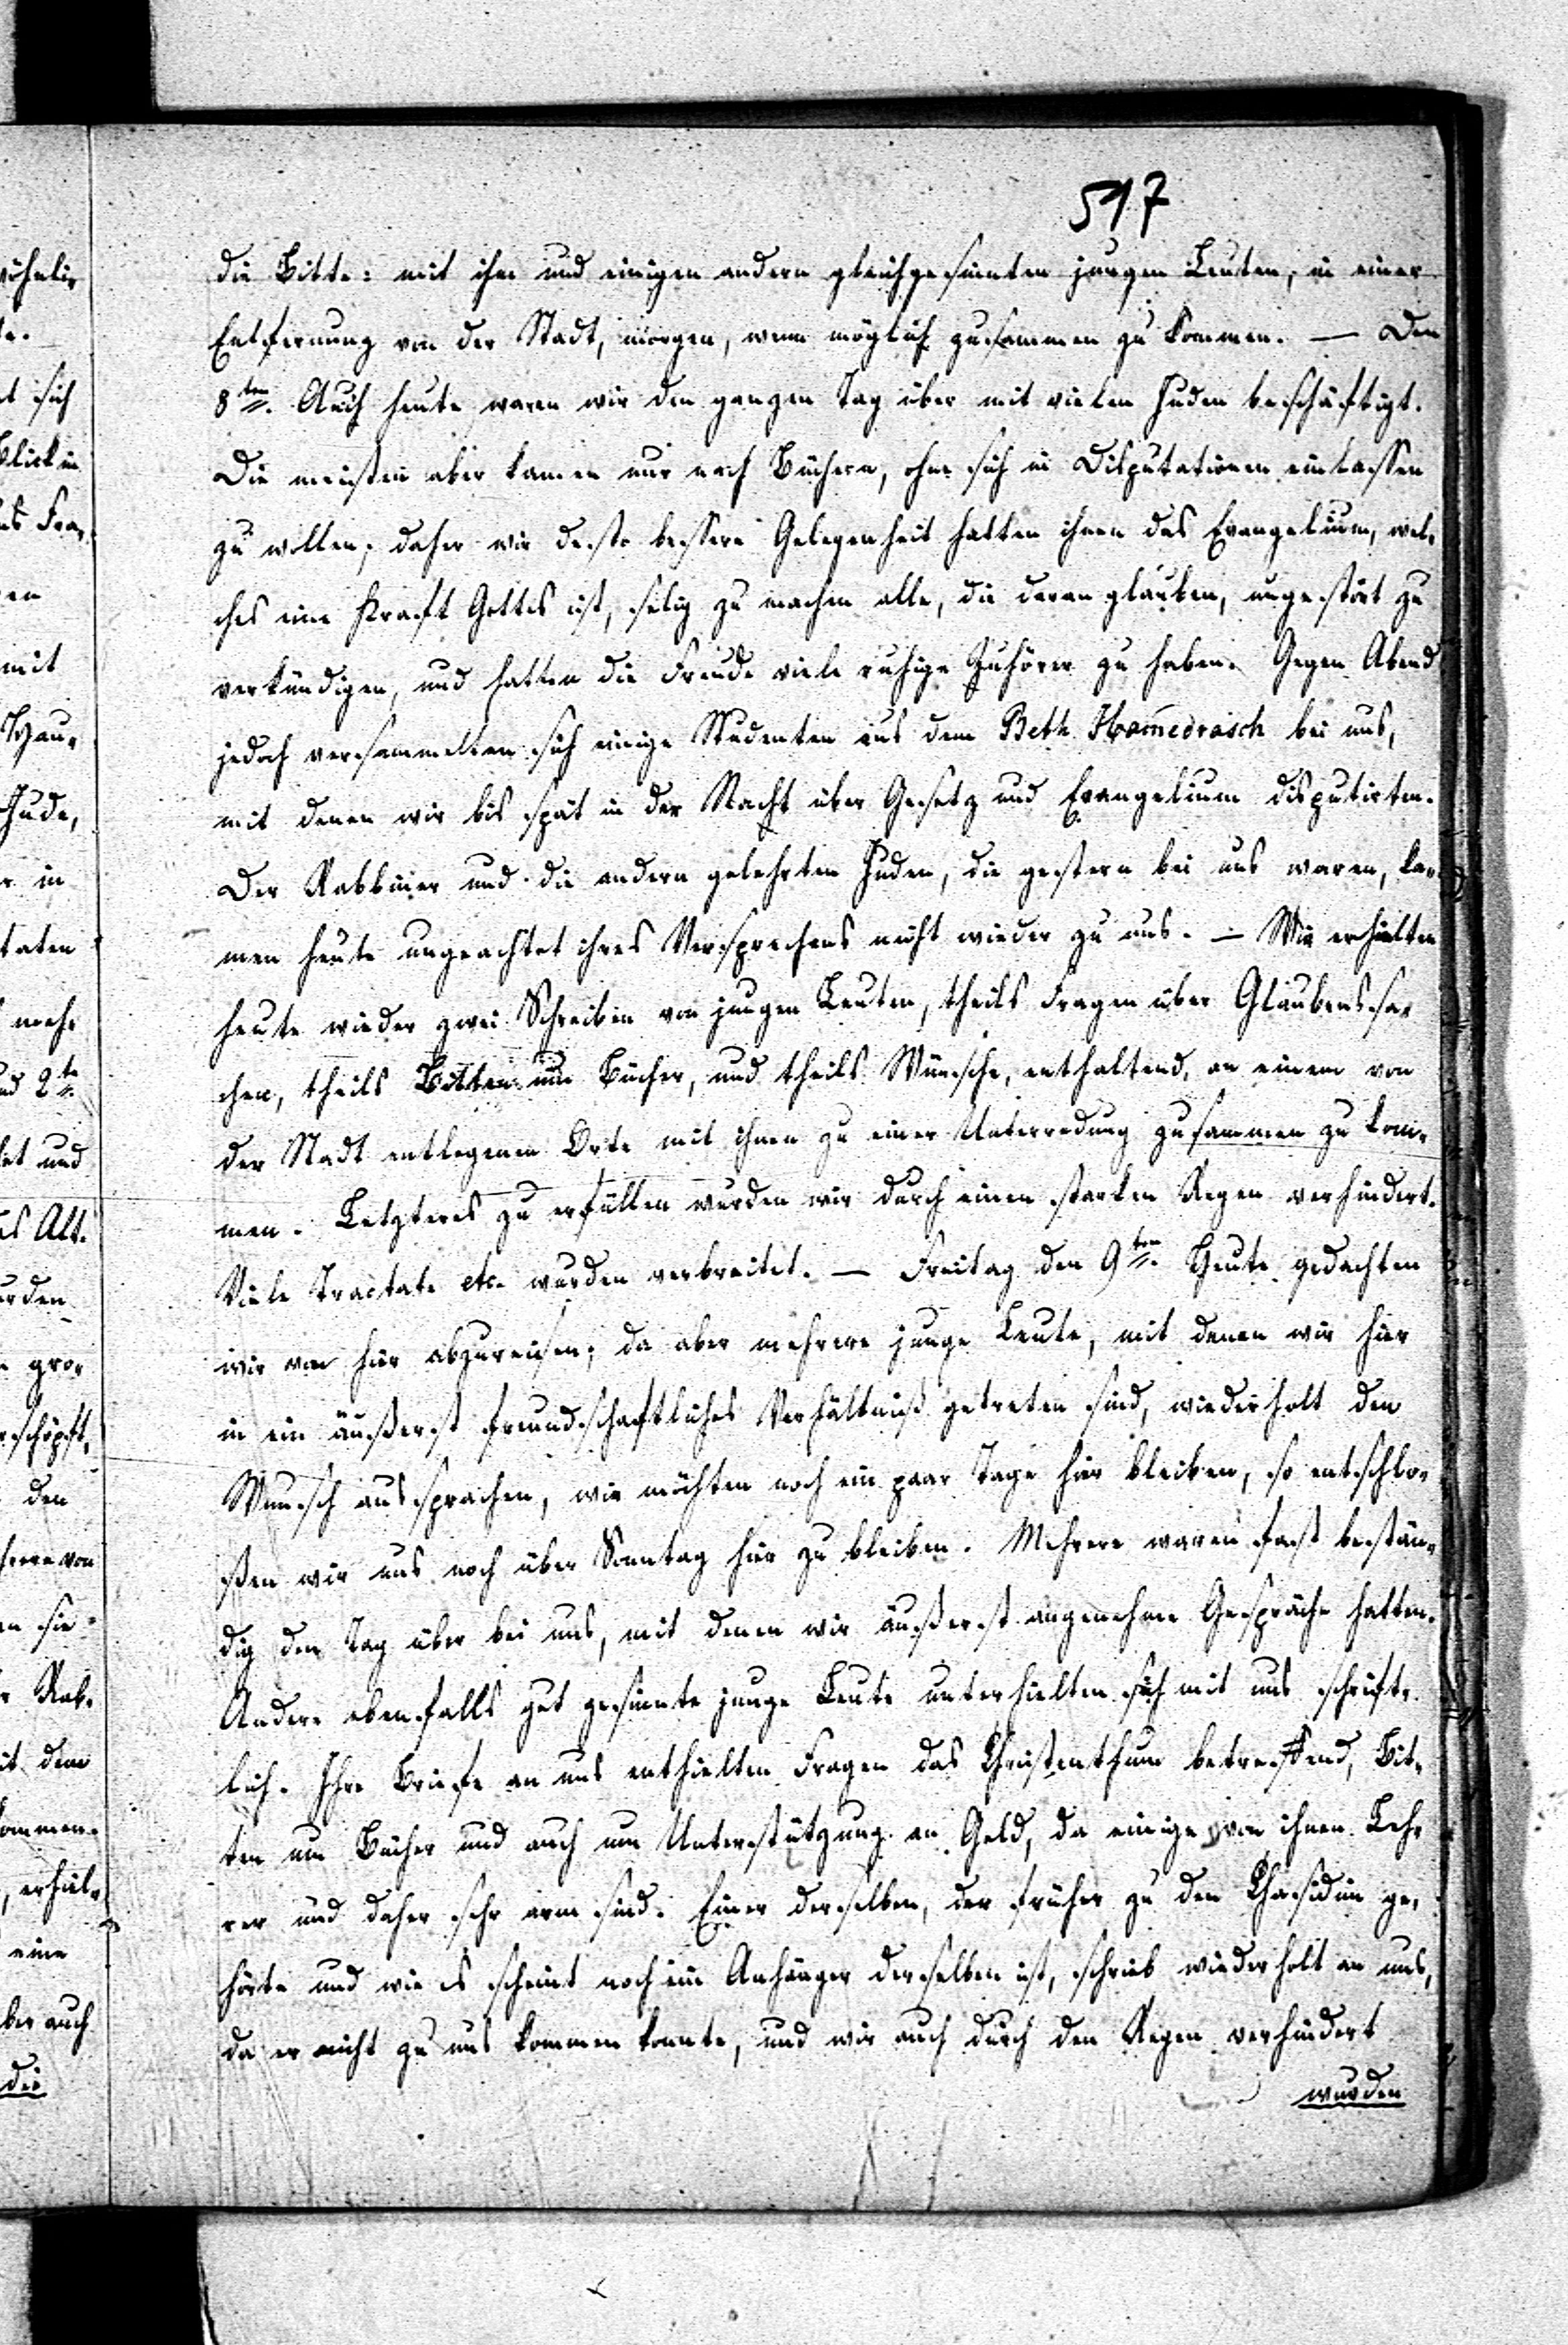 517
die Bitte: mit ihm und einigen andern gleichgesinnten jungen Leuten, in einer
Entfernung von der Stadt, morgen, wenn möglich zusammen zu kommen. — Den
8ten. Auch heute waren wir den ganzen Tag über mit vielen Juden beschäftigt.
Die meisten aber kamen nur nach Büchern, ohne sich in Disputationen einlassen
zu wollen, daher wir desto bessere Gelegenheit hatten ihnen das Evangelium, wel-
ches eine Kraft Gottes ist, selig zu machen alle, die daran glauben, ungestört zu
verkündigen, und hatten die Freude viele ruhige Zuhörer zu haben. Gegen Abend
jedoch versammelten sich einige Studenten aus dem Beth Hamedrasch bei uns,
mit denen wir bis spät in der Nacht über Gesetz und Evangelium disputirten.
Der Rabbiner und die andern gelehrten Juden, die gestern bei uns waren, ka-
men heute ungeachtet ihres Versprechens nicht wieder zu uns. — Wir erhielten
heute wieder zwei Schreiben von jungen Leuten, theils Fragen über Glaubenssa-
chen, theils Bitten um Bücher, und theils Wünsche, enthaltend, an einem von
der Stadt entlegenen Orte mit ihnen zu einer Unterredung zusammen zu kom-
men. Letzteres zu erfüllen wurden wir durch einen starken Regen verhindert.
Viele Tractate etc. wurden verbreitet. — Freitag den 9ten. Heute gedachten
wir von hier abzureisen; da aber mehrere junge Leute, mit denen wir hier
in ein äußerst freundschaftliches Verhältniß getreten sind, wiederholt den
Wunsch aussprachen, wir möchten noch ein paar Tage hier bleiben, so entschlo-
ßen wir uns noch über Sonntag hier zu bleiben. Mehrere waren fast bestän-
dig den Tag über bei uns, mit denen wir äußerst angenehme Gespräche hatten.
Andere ebenfalls gut gesinnte junge Leute unterhielten sich mit uns schrift-
lich. Ihre Briefe an uns enthielten Fragen das Christenthum betreffend, Bit-
ten um Bücher und auch um Unterstützung an Geld, da einige von ihnen Leh-
rer und daher sehr arm sind. Einer derselben, der früher zu den Chasidim ge-
hörte und wie es scheint noch ein Anhänger derselben ist, schrieb wiederholt an uns,
da er nicht zu uns kommen konnte, und wir auch durch den Regen verhindert
wurden